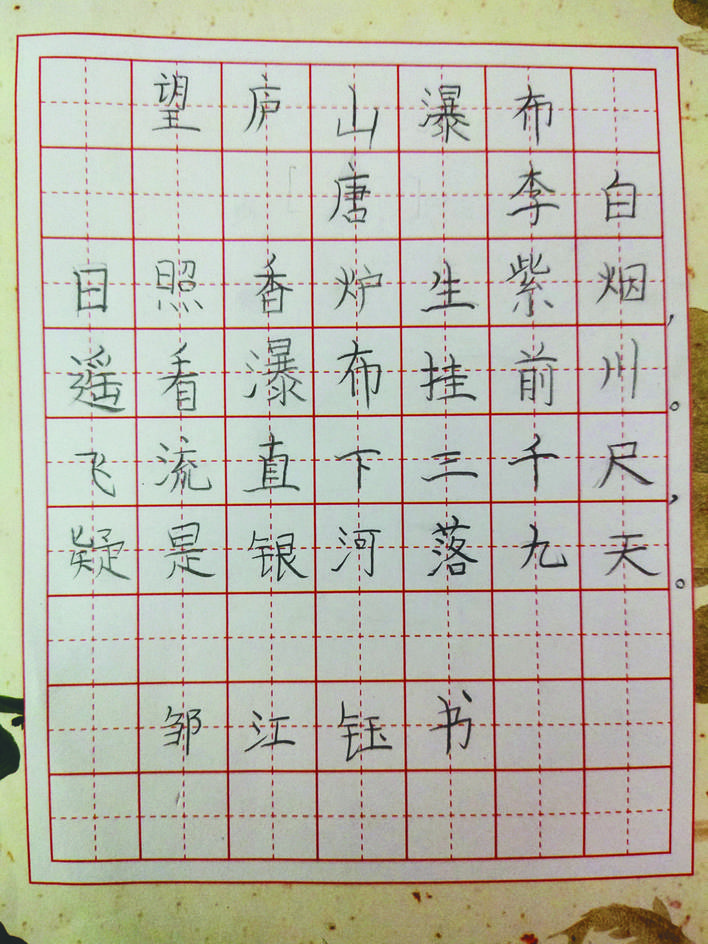 望庐山瀑布
唐 李白
日照香炉生紫烟，
遥看瀑布挂前川。
飞流直下三千尺，
疑是银河落九天。
邹江钰书